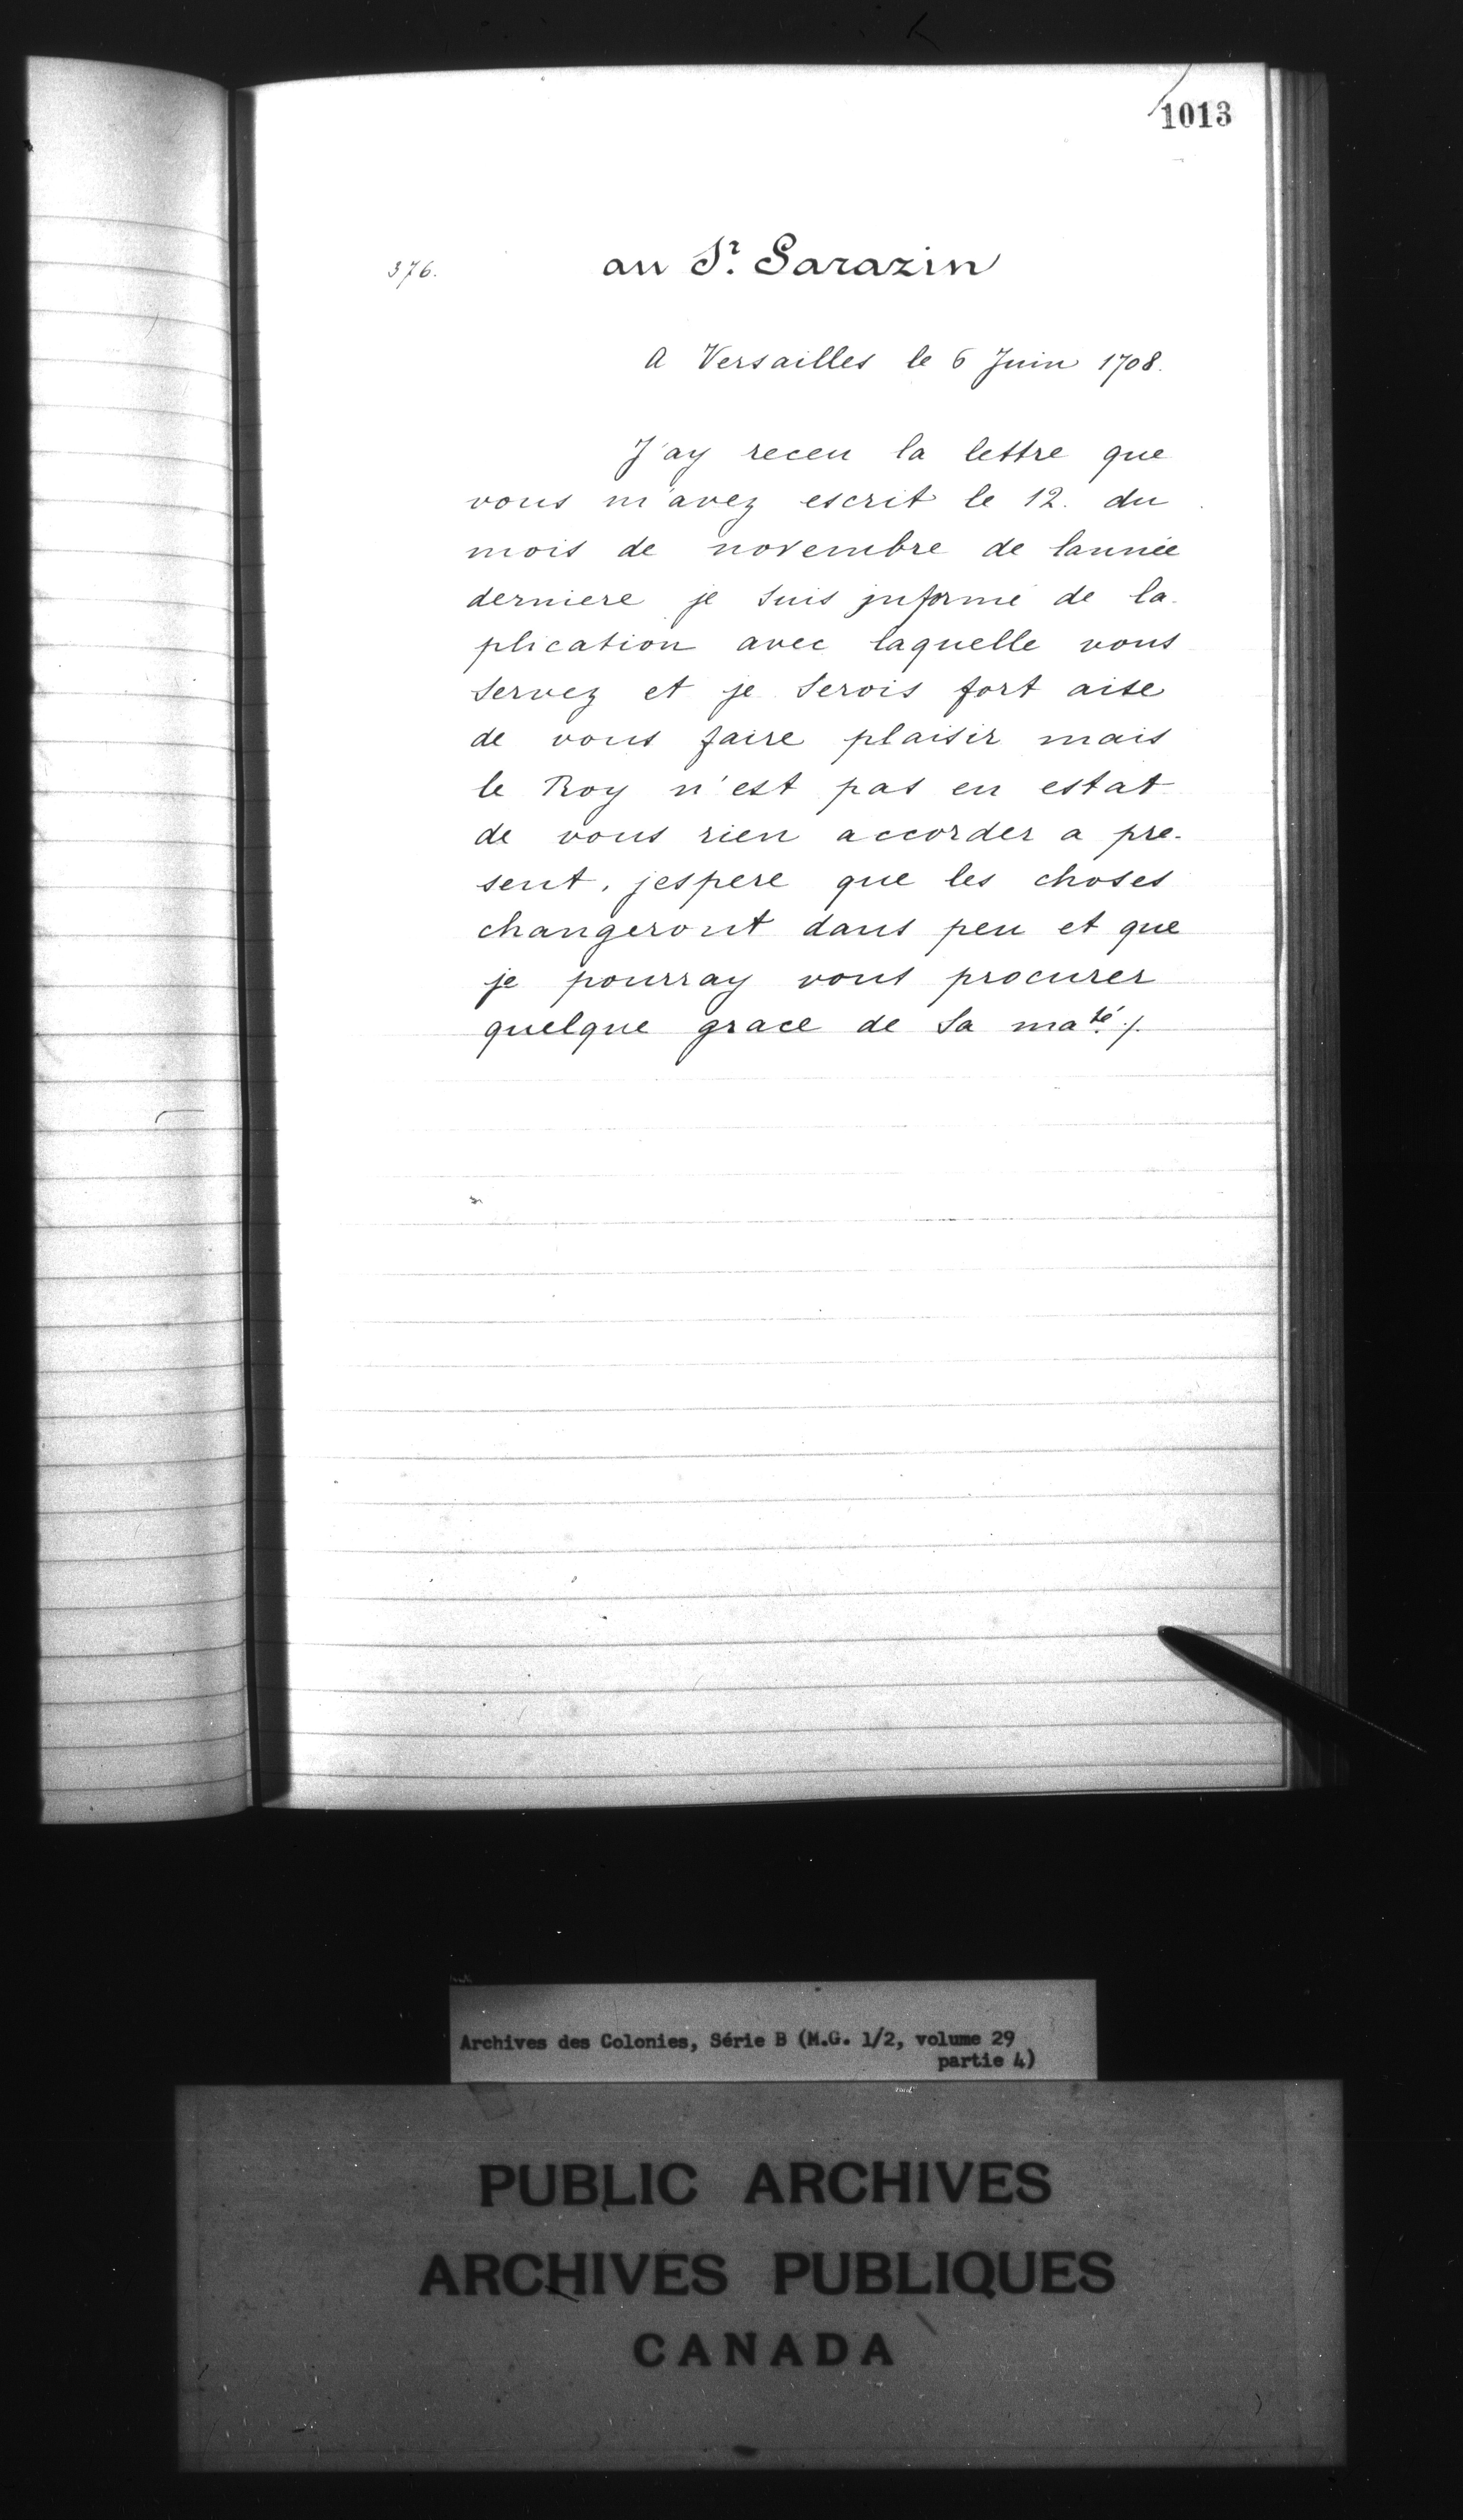 1013
376.
au Sr. Sarazin
A Versailles le 6 Juin 1708.
J'ay receu la lettre que
vous m'avez escrit le 12. du
mois de novembre de lannée
derniere je suis jnformé de la-
plication avec laquelle vous
servez et je serois fort aise
de vous faire plaisir mais
le Roy n'est pas en estat
de vous rien accorder a pre-
sent, jespere que les choses
changeront dans peu et que
je pourray vous procurer
quelque grace de sa maté ./.
Archives des Colonies, Série B (M.G. 1/2, volume 29
partie 4)
PUBLIC ARCHIVES
ARCHIVES PUBLIQUES
CANADA